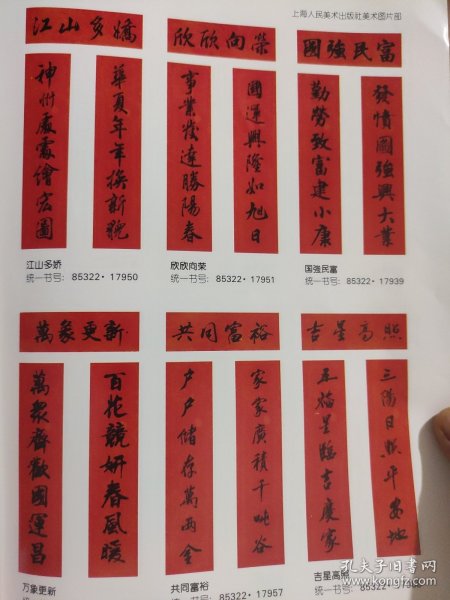 上海人民美术出版社美术图片部
江山多嬌
華夏年年換新貌
神州處處繪宏圖
江山多娇
统一书号：85322·17950
欣欣向榮
國運興隆如旭日
事業發達勝陽春
欣欣向荣
统一书号：85322·17951
國強民富
發憤圖強興大業
勤勞致富建小康
国强民富
统一书号：85322·17939
萬象更新
百花競妍春風暖
萬衆齊歡國運昌
万象更新
共同富裕
家家廣積千吨谷
户户儲存萬両金
共同富裕
统一书号：85322·17957
吉星高照
三陽日照平安地
五福星臨吉慶家
吉星高照
统一书号：85322·179
孔夫子旧书网
www.kongfz.com